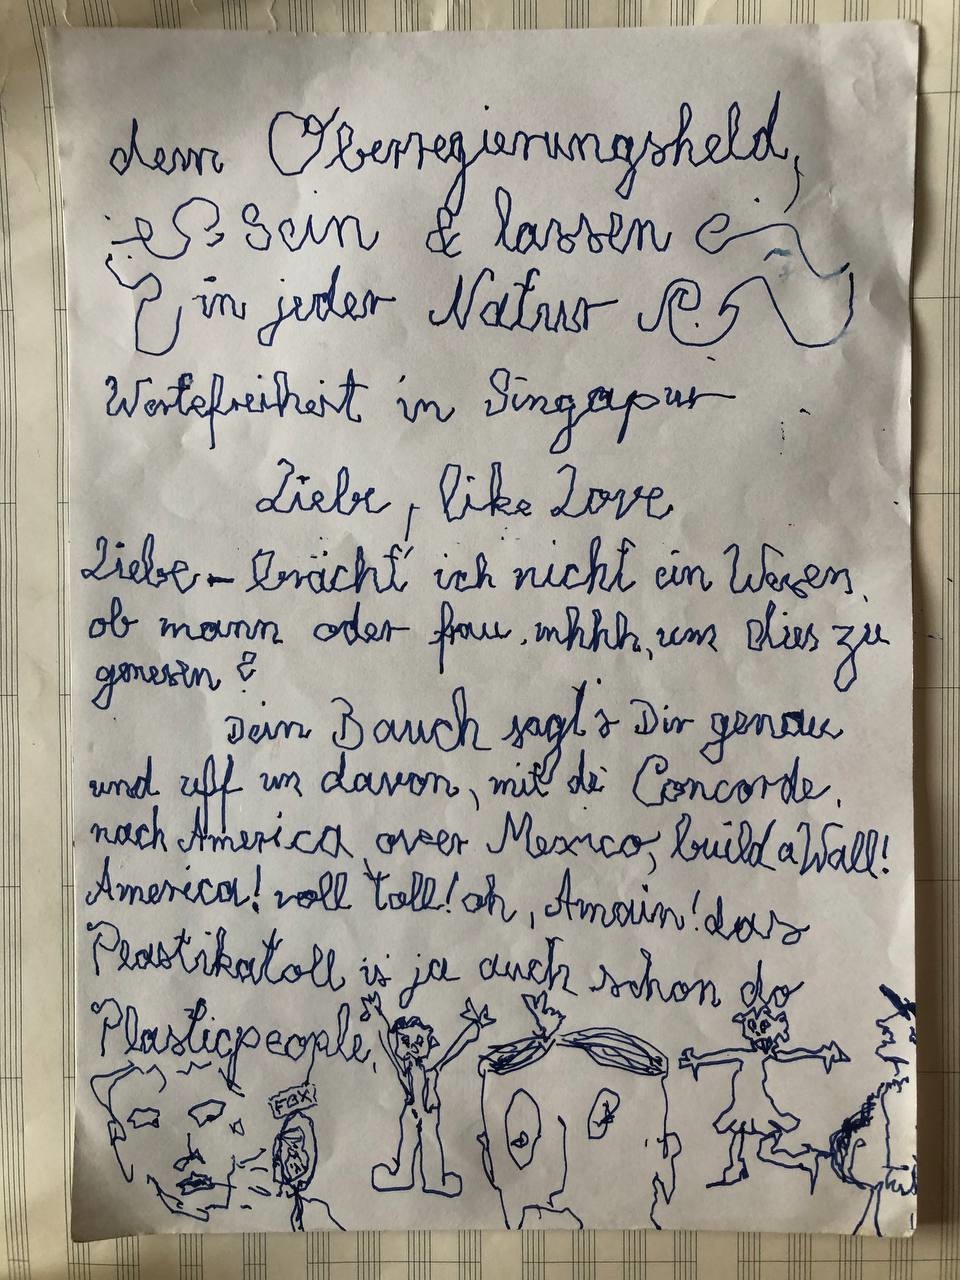 dem Oberregierungsheld,
Sein & lassen
in jeder Natur
Wertefreiheit in Singapur
Liebe, like Love
Liebe – brächt' ich nicht ein Wesen,
ob mann oder frau, mhhh, um dies zu
genesen?
Dein Bauch sagt's Dir genau
und uff un davon, mit de Concorde,
nach America, over Mexico, build a Wall!
America! voll toll! oh, Amain! das
Plastikatoll is ja auch schon do
Plasticpeople,
FBX